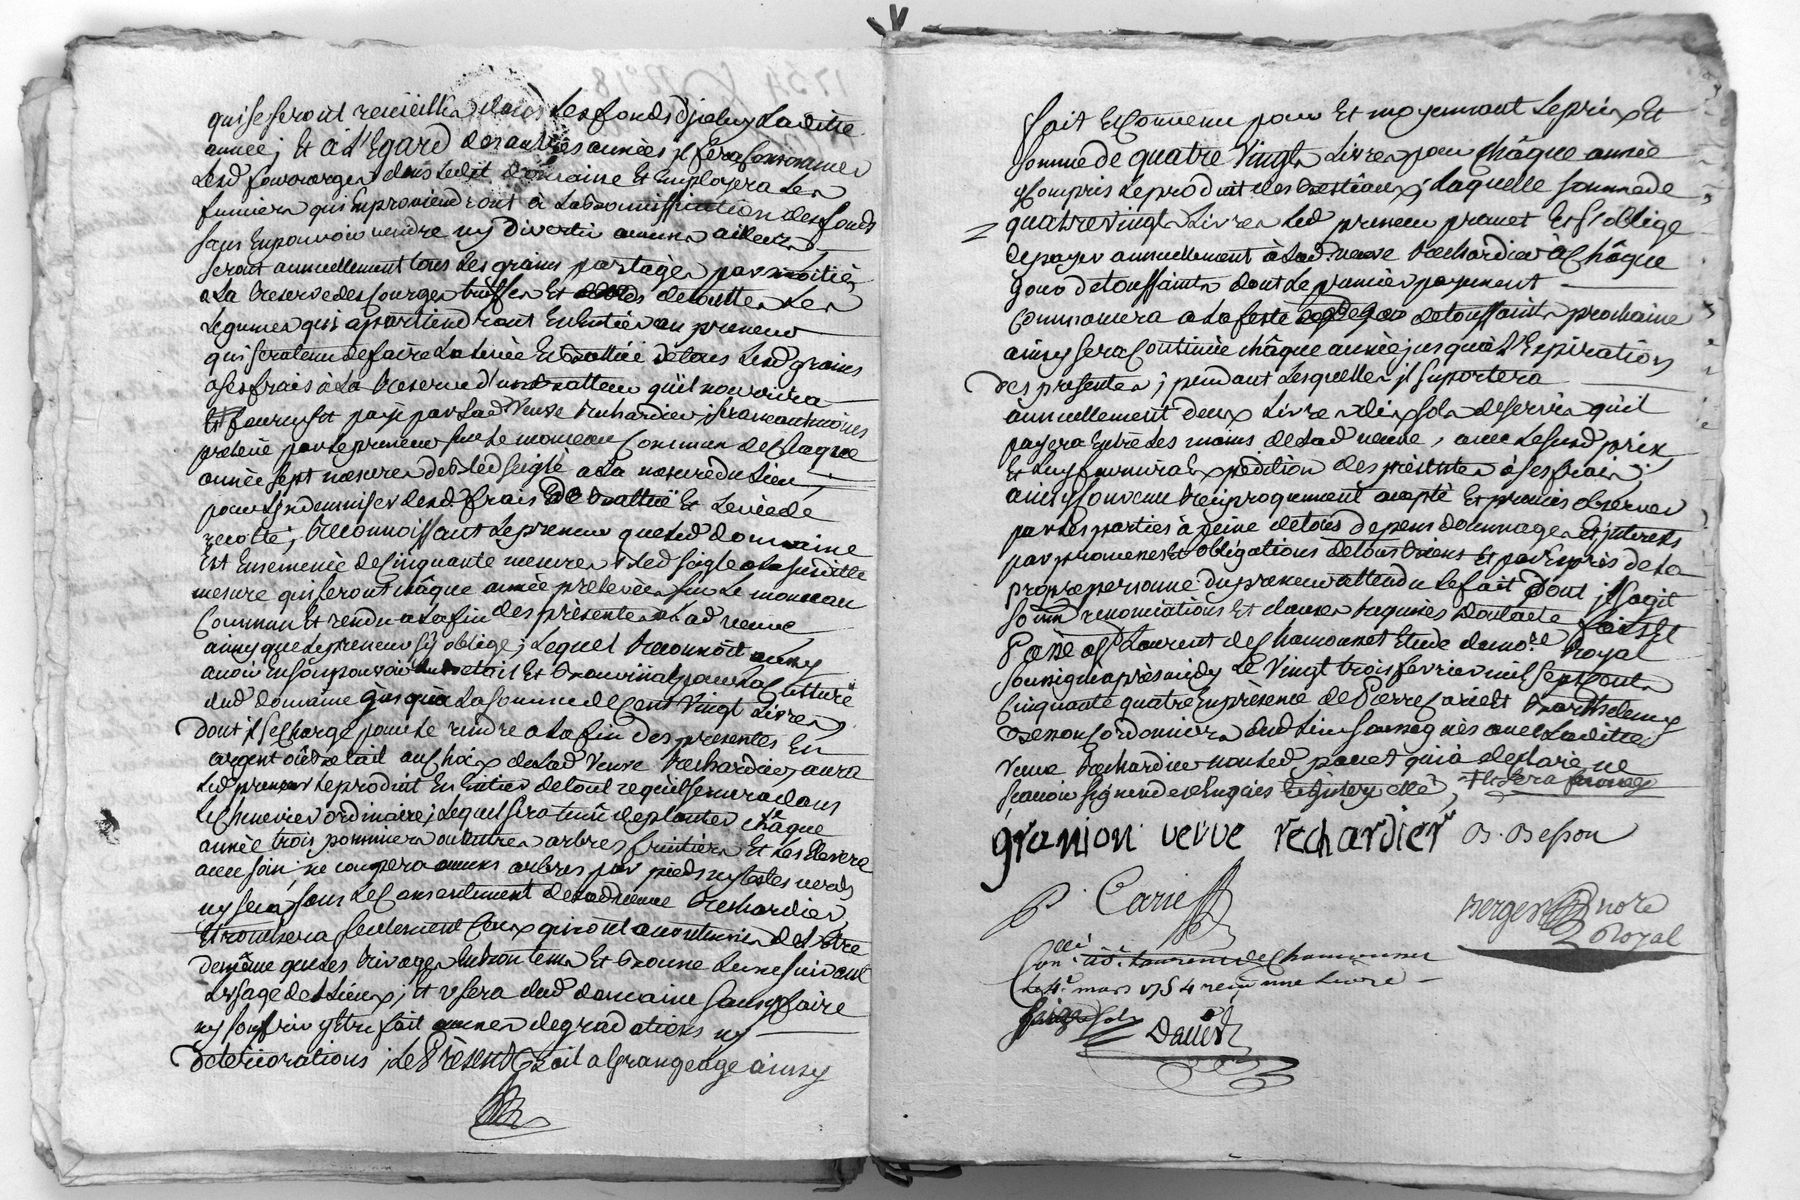 qui se feront recueillis dans les fonds d'jceluy Laditte
année; Et à L'Egard des autres années jl fera Consommer
Lesd fourrages dans Ledit domaine Et Employera Les
fumiers qui En proviendront à La bonniffication des fonds
sans En pouvoir vendre ny Divertir aucuns ailleurs
seront annuellement tous Les grains partagés par moitié
a La reserve des Courges truffes Et de touttes Les
Legumes qui appartiendront En Entier au preneur
qui sera tenu de faire La Levée Et Battüe de tous Lesd grains
a ses frais à La reserve d'un Batteur qu'il nourrira
Et fourny Et payé par Lad Veuve rechardier; sera neantmoins
prelevé par Le preneur sur Le monceau Commun de Chaque
année sept mesures de bled seigle a La mesure du Lieu
pour L'Indemniser desd. frais de Battüe Et Levée de
recolte; reconnoissant Le preneur que Led domaine
Est Ensemencé de Cinquante mesures bled seigle a La susditte
mesure qui seront châque année prelevées sur Le monceau
Commun Et rendu a La fin des presentes a Lad veuve
ainsy que Le preneur s'y oblige; Lequel reconnoit aussy
avoir En son pouvoir En Betail Et pour La Culture
dud domaine jusqu'à La somme de Cent Vingt Livres
Dont il se Charge pour Le rendre a La fin Des presentes En
argent ou Betail au Choix de Lad Veuve rechardier, aura
Led preneur Le produit En Entier de tout ce qu'il semera dans
Le Chenevier ordinaire; Lequel sera tenu de planter châque
année trois pommiers ou autres arbres fruitiers Et Les Elevera
avec soin; ne coupera aucuns arbres par pieds ny testes verds
ny secs sans Le Consentement de Lad veuve rechardier
Et tondra seulement Ceux qui ont accoutumés de L'être
De même que Les En bon tems Et bonne Lune suivant
L'usage des Lieux; Et usera dud domaine sans y faire
ny souffrir y Etre fait aucunes degradations ny
Deteriorations; Le Présent bail a Grangeage ainsy
fait Et Convenu pour Et moyennant Le prix Et
somme de quatre Vingts Livres pour châque année
y Compris Le produit des bestiaux; Laquelle somme de
quatre vingts Livres Led preneur promet Et s'oblige
de payer annuellement à Lad veuve rechardier à Châque
jour de toussaints dont Le premier payement
Commancera a La feste de toussaints prochaine
ainsy sera Continüé châque année jusqu'à L'Expiration
Des presentes; pendant Lesquelles jl suportera
annuellement deux Livres dix sols de Servis qu'il
payera Entre Les mains de Lad veuve, avec Le susd prix
Et Luy fournira Expedition des presentes à ses frais;
ainsy Convenu reciproquement accepté Et promis observer
par Les parties à peine de tous Depens dommages Et jnterests
par promesses Et obligations de tous biens Et par Exprès de La
propre personne du preneur attendu Le fait Dont jl s'agit
soum renonciations Et clauses requises Dont acte fait Et
Passé a St Laurent de Chamousset Etude du no.re Royal
soussigné après midy Le Vingt trois fevrier mil sept cents
Cinquante quatre En presence de Pierre Carie Et Barthelemy
Besson Cordonniers dud Lieu soussignés avec Laditte
Veuve rechardier non Led qui a declaré ne
sçavoir signer de ce Enquis
granjon veuve rechardier B. Besson
P. Carie
Berger Nore
Royal
Conllé au St Laurent de Chamousset
Le 4e. mars 1754 reçu une Livre
sols
David